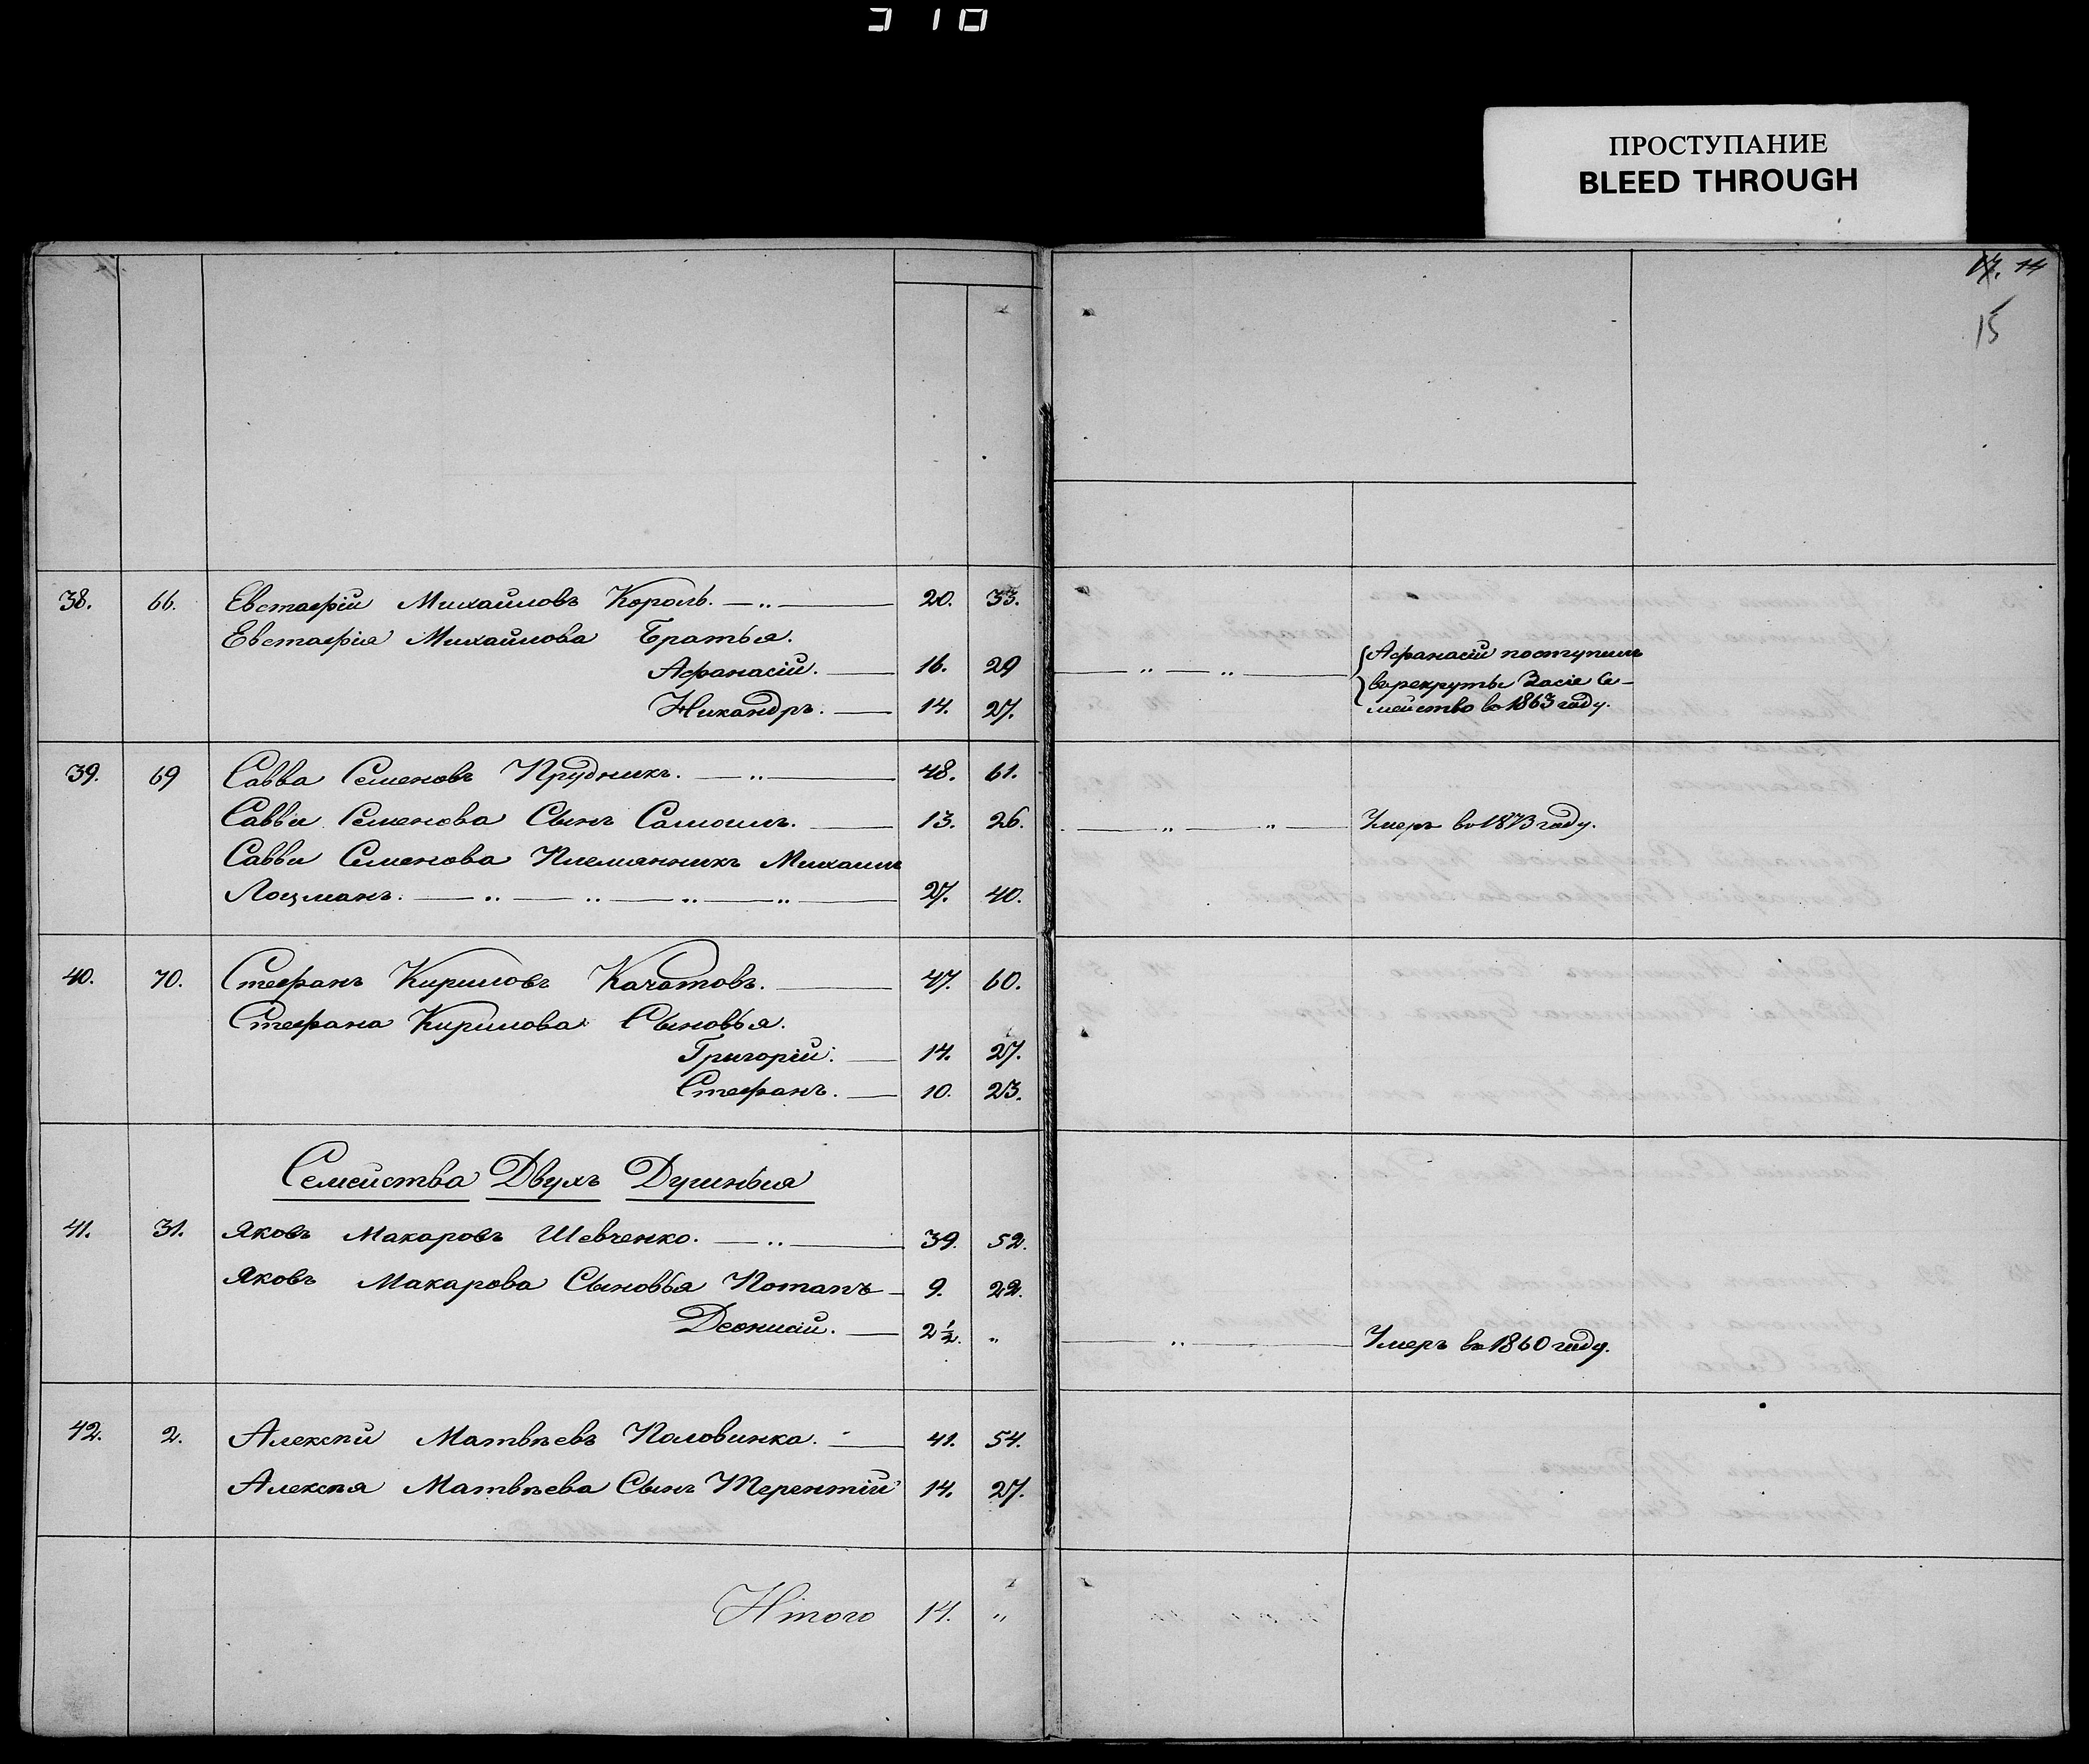 310
ПРОСТУПАНИЕ
BLEED THROUGH
14
15
38. 66. Евстафій Михайловъ Король. 20. 33.
Евстафія Михайлова Братья.
Афанасій. 16. 29 Афанасій поступилъ
врекруты Засіе Се-
Никандръ. 14. 27. мейство во 1863 году.
39. 69 Савва Семеновъ Прудникъ. 48. 61.
Саввы Семенова Сынъ Самоилъ. 13. 26. Умеръ во 1873 году.
Саввы Семенова Племянникъ Михаилъ
Лоцманъ. 27. 40.
40. 70. Стефанъ Кириловъ Качатовъ. 47. 60.
Стефана Кирилова Сыновья.
Григорій. 14. 27.
Стефанъ. 10. 23.
Семейства Двухъ Душныя
41. 31. Яковъ Макаровъ Шевченко. 39. 52.
Яковъ Макарова Сыновья Потапъ 9. 22.
Деонисій. 2 1/2. " Умеръ во 1860 году.
42. 2. Алексѣй Матвѣевъ Половинка. 41. 54.
Алексѣя Матвѣева Сынъ Терентій 14. 27.
Итого 14. "